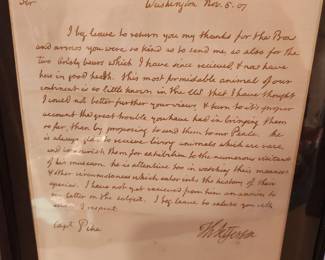 Sir Washington Nov. 5. 07
I beg leave to return you my thanks for the Bow
and arrows you were so kind as to send me as also for the
two Grisly bears which I have since recieved, & now have
here in good health. this most formidable animal of our
continent is so little known in the old that I have thought
I could not better further your views, & turn to it's proper
account the great trouble you have had in bringing them
so far, than by proposing to send them to mr Peale. he
is always glad to recieve living animals which are rare,
and to nourish them for exhibition to the numerous visitants
of his museum. he is attentive too in watching their manners
& other circumstances which enter into the history of their
species. I have not yet recieved from him an answer to
my letter on the subject. I beg leave to salute you with
esteem & respect.
Th: Jefferson
Capt. Pike